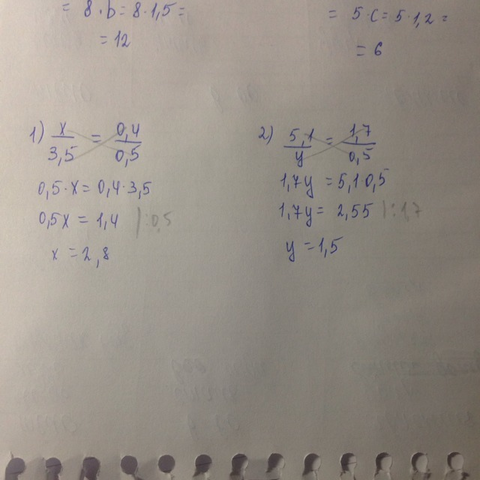 = 8 · b = 8 · 1,5 =
= 12
= 5 · c = 5 · 1,2 =
= 6
1) x/3,5 = 0,4/0,5
0,5 · x = 0,4 · 3,5
0,5x = 1,4 |:0,5
x = 2,8
2) 5,1/y = 1,7/0,5
1,7y = 5,1 0,5
1,7y = 2,55 |:1,7
y = 1,5